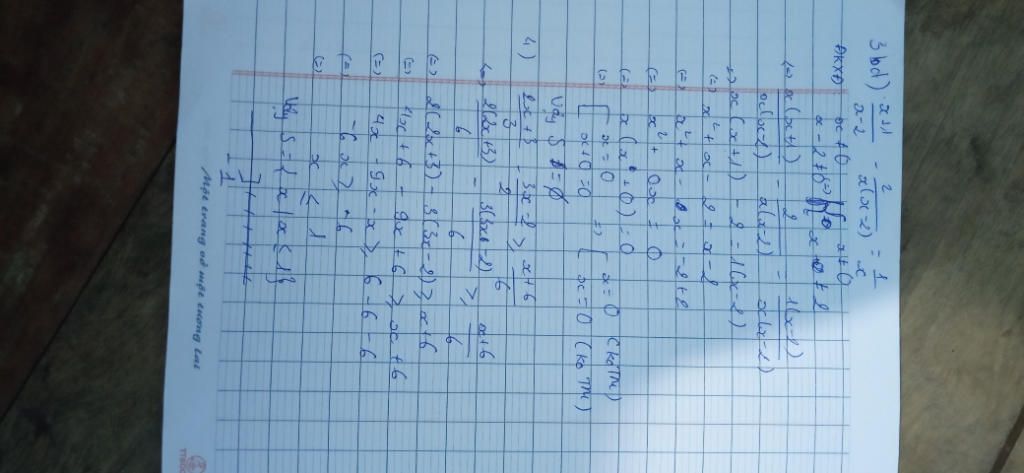 3bd) x+1/x-2 - 2/x(x-2) = 1/x
ĐKXĐ x ≠ 0 x ≠ 0
x - 2 ≠ 0 <=> x ≠ 2
<=> x(x+1)/x(x-2) - 2/x(x-2) = 1(x-2)/x(x-2)
=> x(x+1) - 2 = 1(x-2)
<=> x² + x - 2 = x - 2
<=> x² + x - x = -2 + 2
<=> x² + 0x = 0
<=> x(x + 0) = 0
<=> [ x = 0 => [ x = 0 (koTM)
x + 0 = 0 x = 0 (ko TM)
Vậy S = ∅
4) 2x+3/3 - 3x-2/2 ≥ x+6/6
<=> 2(2x+3)/6 - 3(3x-2)/6 ≥ x+6/6
<=> 2(2x+3) - 3(3x-2) ≥ x+6
<=> 4x + 6 - 9x + 6 ≥ x + 6
<=> 4x - 9x - x ≥ 6 - 6 - 6
<=> -6x ≥ -6
<=> x ≤ 1
Vậy S = { x | x ≤ 1}
1